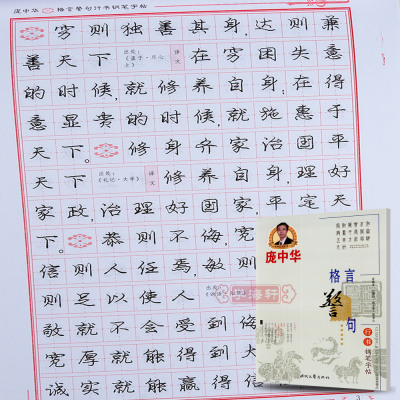 庞中华 格言警句行书钢笔字帖
穷则独善其身,达则兼
善天下 出处:《孟子·尽心上》 译文 在穷困失意
的时候,就修养自身;在得
意显贵的时候,就施惠于
天下。修身齐家治国平
天下 出处:《礼记·大学》 译文 修养自身,治理好
家政,治理好国家,平定天
下。恭则不侮,宽
信则人任焉,敏则
则足以使人
敬就不会受到侮
宽厚就能得到大
诚实就能赢得
庞中华
格言
警句
行书
钢笔字帖